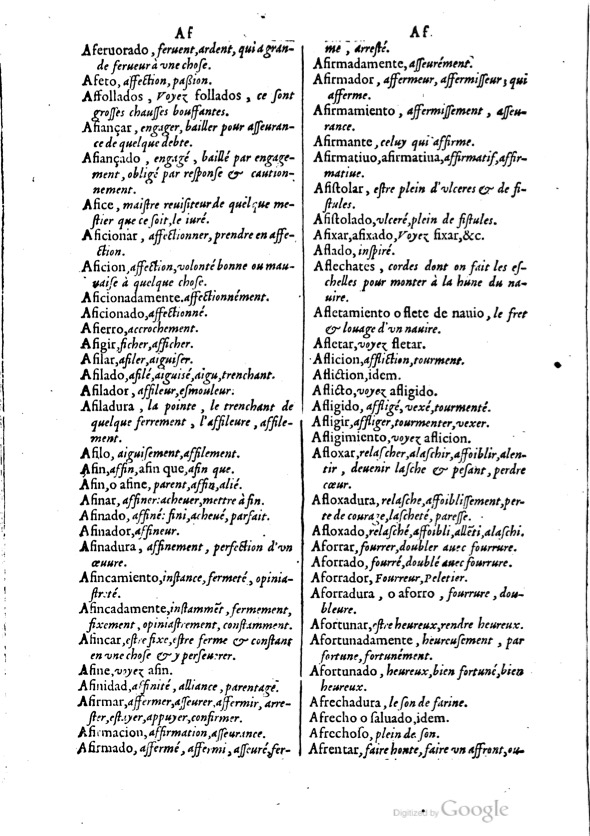 Af
Aferuorado, feruent, ardent, qui a gran-
de ferueur à vne chose.
Afeto, affection, passion.
Affollados, Voyez follados, ce sont
grosses chausses bouffantes.
Afiançar, engager, bailler pour asseuran-
ce de quelque debte.
Afiançado, engagé, baillé par engage-
ment, obligé par response & caution-
nement.
Afice, maistre reuisiteur de quelque me-
stier que ce soit, le iuré.
Aficionar, affectionner, prendre en affe-
ction.
Aficion, affection, volonté bonne ou mau-
uaise à quelque chose.
Aficionadamente, affectionnément.
Aficionado, affectionné.
Afierro, accrochement.
Afigir, ficher, afficher.
Afilar, afiler, aiguiser.
Afilado, afilé, aiguisé, aigu, trenchant.
Afilador, affileur, esmouleur.
Afiladura, la pointe, le trenchant de
quelque ferrement, l'affileure, affile-
ment.
Afilo, aiguisement, affilement.
Afin, affin, afin que, afin que.
Afin, o afine, parent, affin, alié.
Afinar, affiner: acheuer, mettre à fin.
Afinado, affiné: fini, acheué, parfait.
Afinador, affineur.
Afinadura, affinement, perfection d'vn
œuure.
Afincamiento, instance, fermeté, opinia-
streté.
Afincadamente, instamment, fermement,
fixement, opiniastrement, constamment.
Afincar, estre fixe, estre ferme & constant
en vne chose & y perseuerer.
Afine, voyez afin.
Afinidad, affinité, alliance, parentage.
Afirmar, affermer, asseurer, affermir, arre-
ster, estayer, appuyer, confirmer.
Afirmacion, affirmation, asseurance.
Afirmado, affermé, affermi, asseuré, fer-
Af
me, arresté.
Afirmadamente, asseurément.
Afirmador, affermeur, affermisseur; qui
afferme.
Afirmamiento, affermissement, asseu-
rance.
Afirmante, celuy qui affirme.
Afirmatiuo, afirmatiua, affirmatif, affir-
matiue.
Afistolar, estre plein d'vlceres & de fi-
stules.
Afistolado, vlceré, plein de fistules.
Afixar, afixado, Voyez fixar, &c.
Aflado, inspiré.
Aflechates, cordes dont on fait les es-
chelles pour monter à la hune du na-
uire.
Afletamiento o flete de nauio, le fret
& louage d'vn nauire.
Afletar, voyez fletar.
Aflicion, affliction, tourment.
Afliction, idem.
Aflicto, voyez afligido.
Afligido, affligé, vexé, tourmenté.
Afligir, affliger, tourmenter, vexer.
Afligimiento, voyez aflicion.
Afloxar, relascher, alaschir, affoiblir, alen-
tir, deuenir lasche & pesant, perdre
cœur.
Afloxadura, relasche, affoiblissement, per-
te de courage, lascheté, paresse.
Afloxado, relasché, affoibli, allēti, alaschi.
Aforrar, fourrer, doubler auec fourrure.
Aforrado, fourré, doublé auec fourrure.
Aforrador, Fourreur, Peletier.
Aforradura, o aforro, fourrure, dou-
bleure.
Afortunar, estre heureux, rendre heureux.
Afortunadamente, heureusement, par
fortune, fortunément.
Afortunado, heureux, bien fortuné, bien
heureux.
Afrechadura, le son de farine.
Afrecho o saluado, idem.
Afrechoso, plein de son.
Afrentar, faire honte, faire vn affront, ou-
Digitized by Google